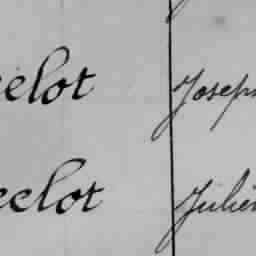 elot Joseph
eclot Julien